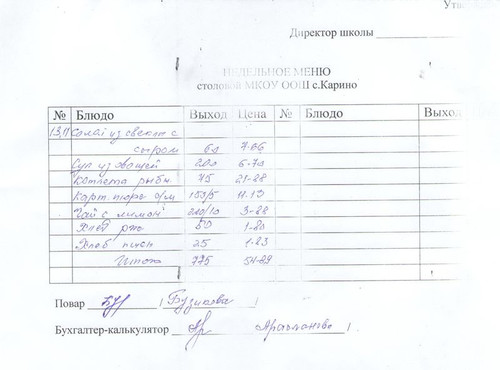 Директор школы
НЕДЕЛЬНОЕ МЕНЮ
столовой МКОУ ООШ с.Карино
№ Блюдо Выход Цена № Блюдо Выход
13,11 Салат из свеклы с
сыром 60 7-06
Суп из овощей 200 6-70
Котлета рыбн. 75 21-28
Карт. пюре 11-13
Чай с лимон 200/10 3-28
Хлеб рж 50 1-80
Хлеб пшен 25 1-83
Итого 775
Повар
Бухгалтер-калькулятор